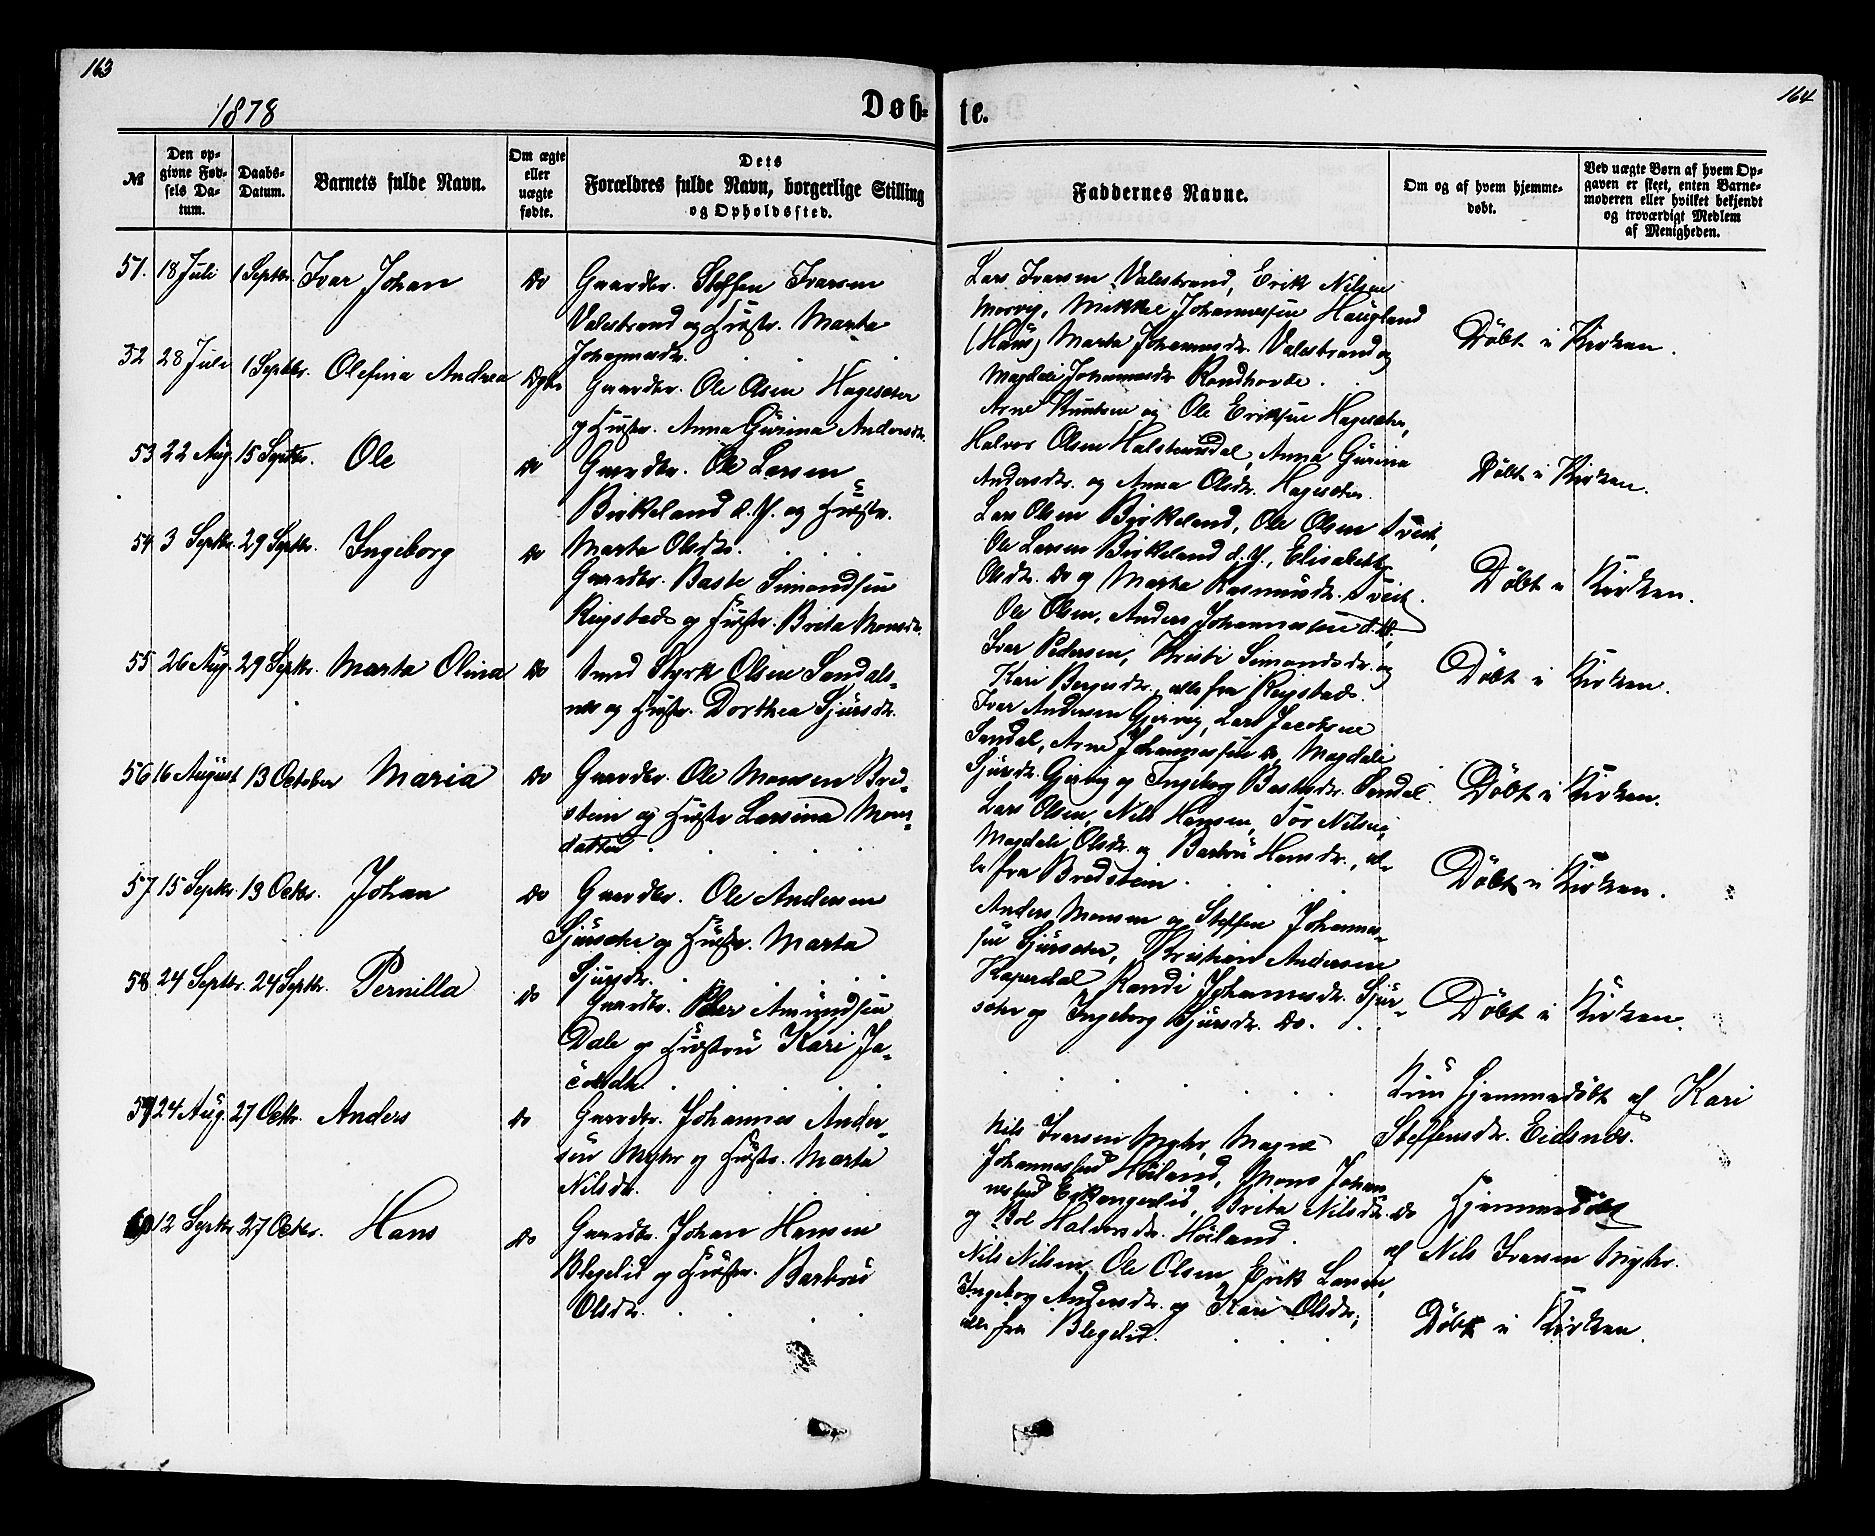 163
164
1878
Døb-
te.
№
Den op-
givne Fød-
sels Da-
tum.
Daabs-
Datum.
Barnets fulde Navn.
Om ægte
eller
uægte
fødte.
Dets
Forældres fulde Navn, borgerlige Stilling
og Opholdssted.
Faddernes Navne.
Om og af hvem hjemme-
døbt.
Ved uægte Børn af hvem Op-
gaven er skeet, enten Barne-
moderen eller hvilket bekjendt
og troværdigt Medlem
af Menigheden.
51. 18 Juli 1 Septbr. Ivar Johan do Gaardbr. Steffen Ivarsen
Valestrand og Hustr. Marta
Johannesdr.
Lars Ivarsen Valestrand, Erik Nilsen
Morvig, Mikkel Johannessen Haugland
(Haus) Marta Johannesdr. Valestrand og
Magdeli Johannesdr. Rondhovde.
Døbt i Kirken.
52 28 Juli 1 Septbr. Olefina Andrea Gaardbr. Ole Olsen Hageseter
og Hustr. Anna Gurina Andersdr.
Arne Knutsen og Ole Eriksen Hageseter,
Halvor Olsen Halstensdal, Anna Gurina
Andersdr. og Anna Olsdr. Hageseter.
Døbt i Kirken.
53 22 Aug. 15 Septbr. Ole do Gaardbr. Ole Larsen
Birkeland d. Y. og Hustr.
Marta Olsdtr.
Lars Olsen Birkeland, Ole Olsen Tveit,
Ole Larsen Birkeland d. Y., Elisabeth
Olsdr. do og Marta Rasmusdr. Tveit.
Døbt i Kirken.
54 3 Septbr. 29 Septbr. Ingeborg do
Gaardbr. Baste Simondsen
Reigstad og Hustr. Brita Monsdr.
Ole Olsen, Anders Johannessen
Ivar Pedersen, Kristi Simondsdr. og
Kari Bergesdr., alle fra Reigstad.
Døbt i Kirken.
55 26 Aug. 29 Septbr. Marta Olina do Smed Styrk Olsen Sandals-
nes og Hustr. Dorthea Sjursdr.
Ivar Andersen Gjervig, Lars Jacobsen
Sandal, Arne Johannessen do, Magdeli
Sjursdr. Gjervig og Ingeborg Bastesdr. Sandal.
56 16 August 13 October Maria do Gaardbr. Ole Monsen Bred-
stein og Hustr. Larsina Mons-
datter
Lars Olsen, Nils Hansen, Tor Nilsen,
Magdeli Olsdr. og Barbru Hansdr., al-
le fra Bredstein.
Døbt i Kirken.
57. 15 Septbr. 13 Octbr. Johan do Gaardbr. Ole Andersen
Sjurseter og Hustr. Marta
Sjursdr.
Anders Monsen og Steffen Johannes-
sen Sjurseter, Kristian Andersen
Kaperdal, Randi Johannesdr. Sjur-
seter og Ingeborg Sjursdr. do.
Døbt i Kirken.
58 24 Septbr. 24 Septbr. Pernilla do Gaardbr. Peder Amundsen
Dale og Hustru Kari Ja-
cobsdr.
Døbt i Kirken.
Kun hjemmedøbt af Kari
Steffensdr. Eidsnes.
59 24 Aug. 27 Octbr. Anders do Gaardbr. Johannes Ander-
sen Myhr og Hustr. Marta
Nilsdr.
Nils Ivarsen Myhr, Magne
Johannessen Høiland, Mons Johan-
nessen Eskangerlid, Brita Nilsdr. do
og Bol Halvorsdr. Høiland.
Hjemmedøbt
af Nils Ivarsen Myhr.
60 12 Septbr. 27 Octbr. Hans do Gaardbr. Johan Hansen
Blegelid og Hustr. Barbru
Olsdr.
Nils Nilsen, Ole Olsen, Erik Larsen,
Ingeborg Andersdr. og Kari Olsdr.,
alle fra Blegelid.
Døbt i Kirken.